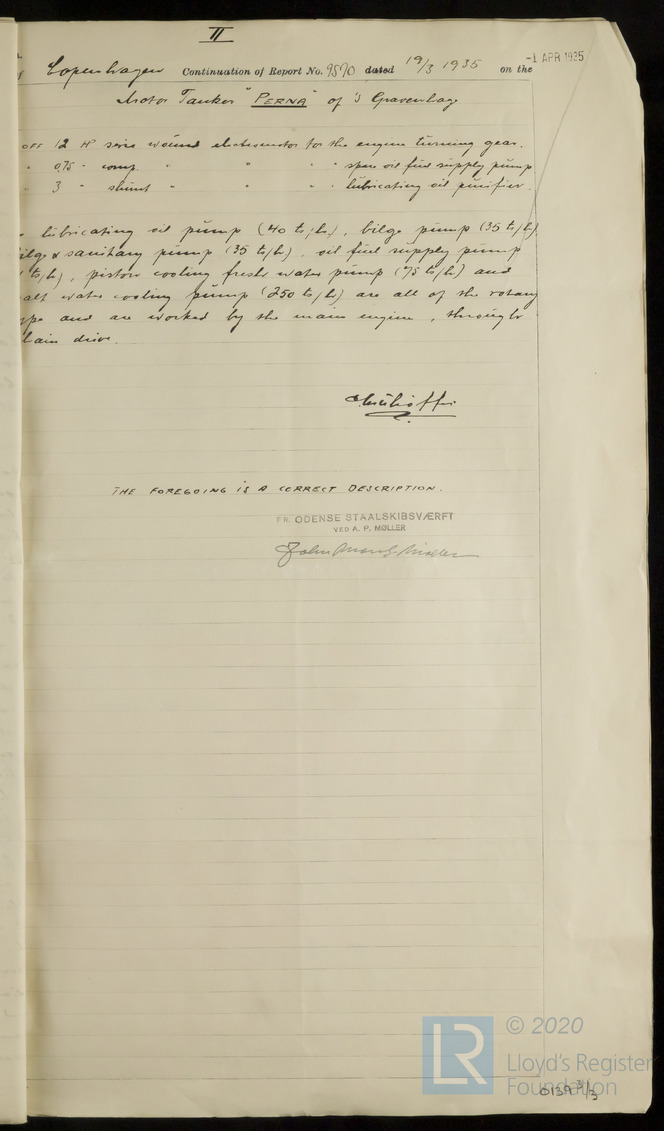 II
Copenhagen Continuation of Report No. 9590 dated 19/3 1935 on the
-1 APR 1935
Motor Tanker "PERNA" of 's Gravenhage
OFF 12 H serie wound electromotor for the engine turning gear.
" 0,75 " comp. " " " " spare oil fuel supply pump
" 3 " shunt " " " " lubricating oil purifier.
lubricating oil pump (40 ts/h), bilge pump (35 ts/h)
ilge & sanitary pump (35 ts/h), oil fuel supply pump
ts/h), piston cooling fresh water pump (75 ts/h) and
alt water cooling pump (250 ts/h) are all of the rotary
ype and are worked by the main engine, through
hain drive.
THE FOREGOING IS A CORRECT DESCRIPTION.
FR. ODENSE STAALSKIBSVÆRFT
VED A. P. MØLLER
© 2020
LR
Lloyd's Register
Foundation
0139 3/3